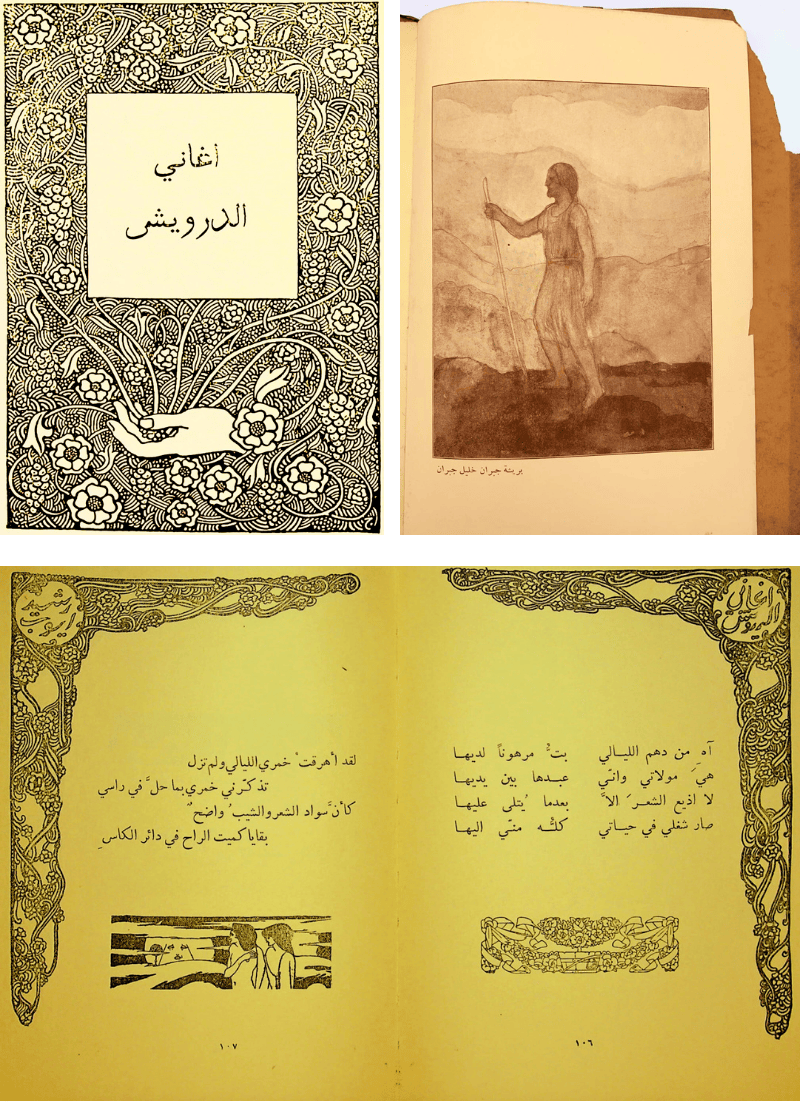 اغاني
الدرويش
بريشة جبران خليل جبران
اغاني
الدرويش
آهِ من دهم الليـالي بتُّ مرهوناً لديهـا
هيَ مولاتي وانـّي عبـدها بين يديهـا
لا اذيع الشعـرَ الاَّ بعدمـا يُتلى عليهـا
صار شغلي في حيـاتي كلُّـه منـّي اليهـا
١٠٦
رشيد
ايوب
لقد أهرقتْ خمري الليالي ولم تزل
تذكّرني خمري بما حلَّ في راسي
كأنَّ سواد الشعر والشيبُ واضحٌ
بقايا كميت الراح في دائر الكاسِ
١٠٧